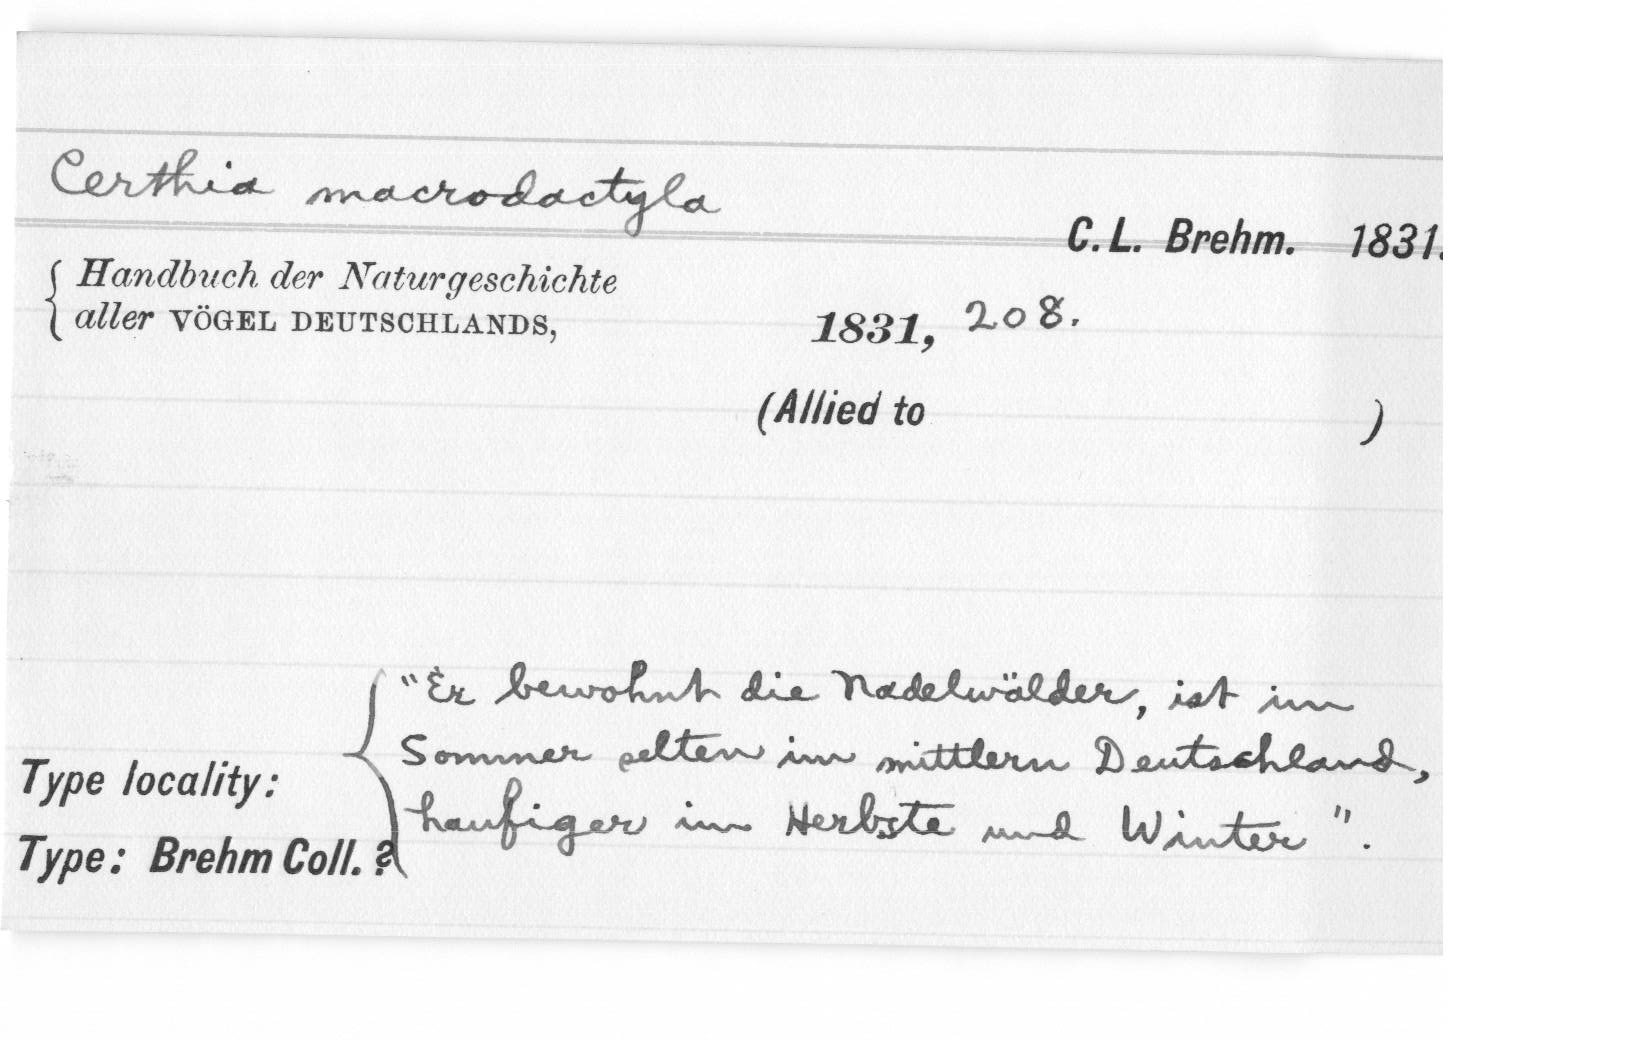 Certhia macrodactyla
C. L. Brehm. 1831.
Handbuch der Naturgeschichte
aller VÖGEL DEUTSCHLANDS,
1831, 208.
(Allied to )
"Er bewohnt die Nadelwälder, ist im
Sommer selten im mittlern Deutschland,
Type locality:
haufiger im Herbste und Winter".
Type: Brehm Coll. ?